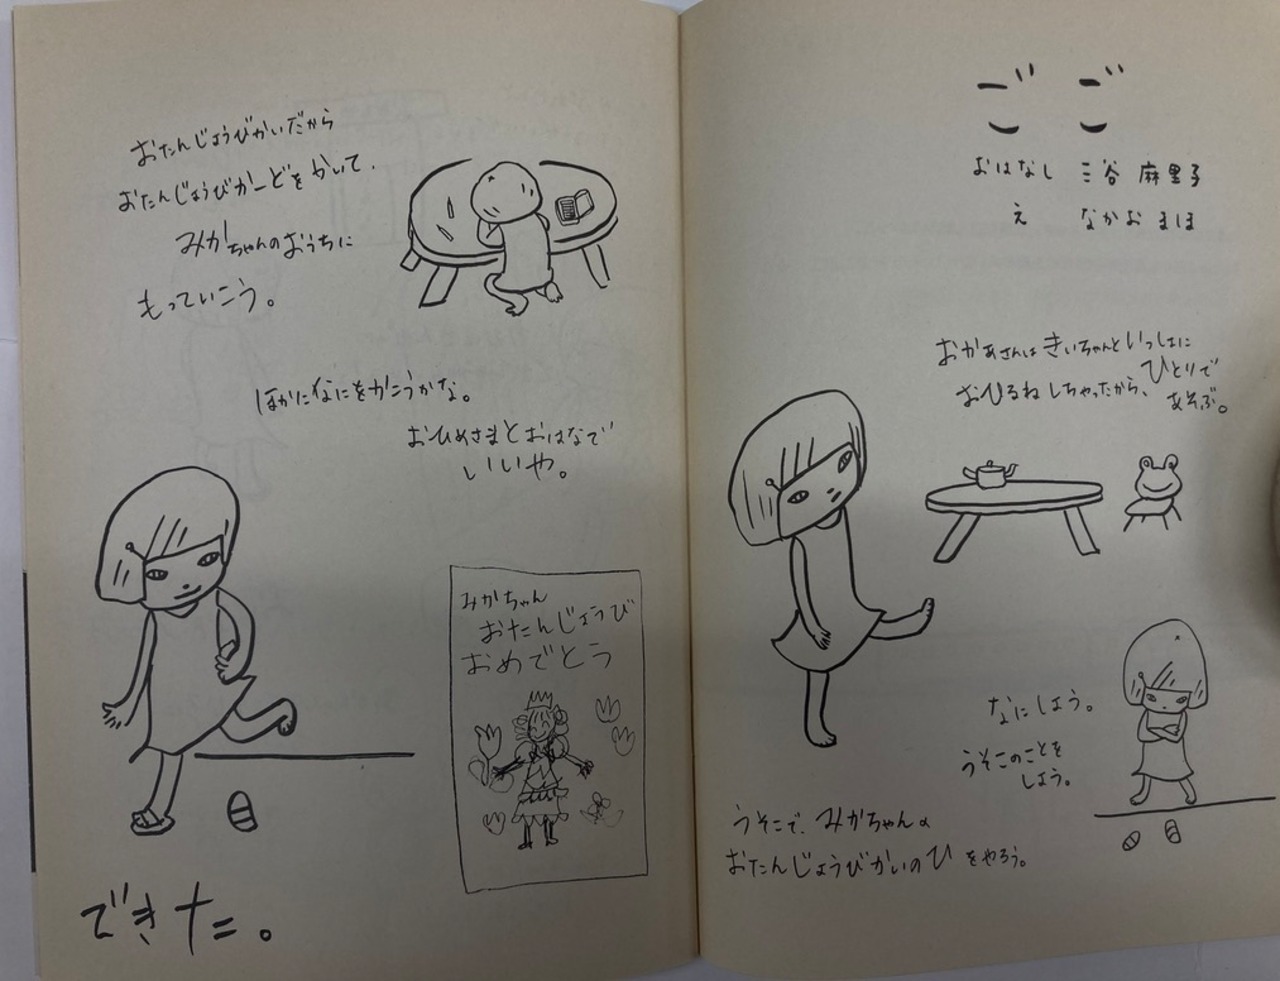 ごご
おはなし 三谷 麻里子
え なかお まほ
おかあさんは きいちゃんと いっしょに
おひるね しちゃったから、ひとりで
あそぶ。
なにしよう。
うそこのことを
しよう。
うそこで、みかちゃんの
おたんじょうびかいのひをやろう。
おたんじょうびかいだから
おたんじょうびかーどを かいて、
みかちゃんのおうちに
もっていこう。
ほかになにをかこうかな。
おひめさまとおはなで
いいや。
みかちゃん
おたんじょうび
おめでとう
できた。